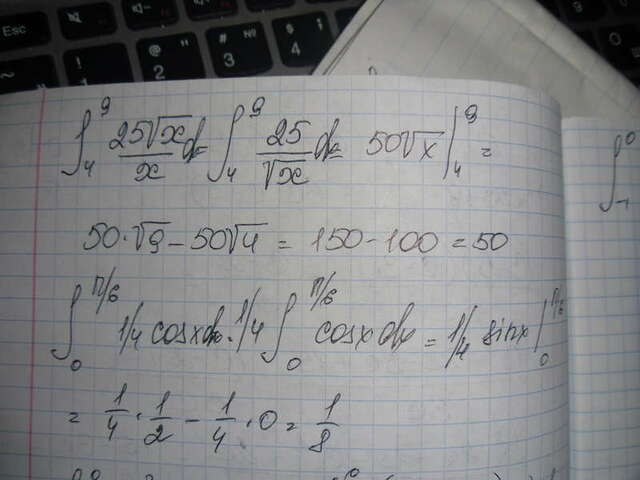 Esc
! 1
@ " 2
# № 3
$ ; 4
∫₄⁹ 25√x/x dx = ∫₄⁹ 25/√x dx = 50√x |₄⁹ =
50·√9 - 50√4 = 150 - 100 = 50
∫₀^π/6 1/4 cosxdx = 1/4 ∫₀^π/6 cosxdx = 1/4 sinx |₀^π/6
= 1/4 · 1/2 - 1/4 · 0 = 1/8